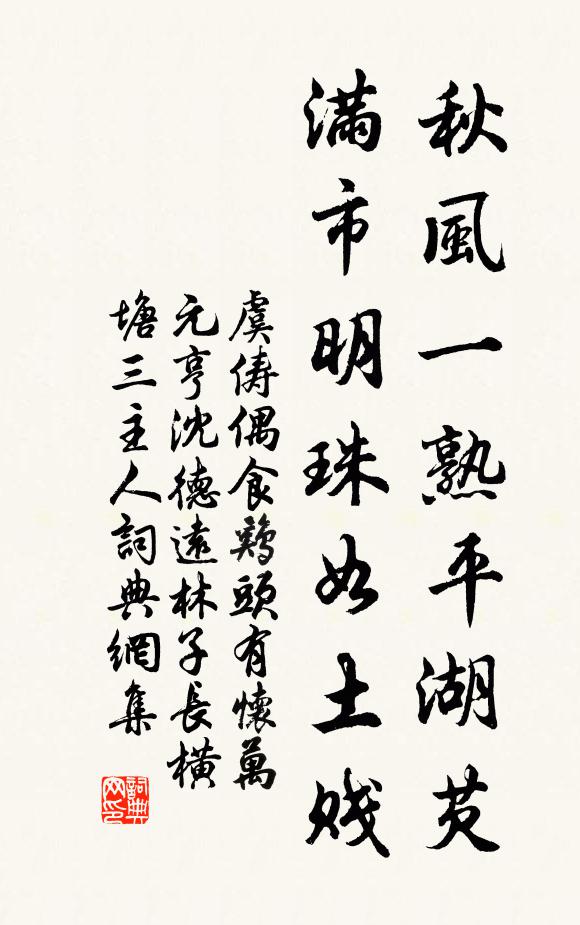 秋風一熟平湖芡
滿市明珠如土賤
虞儔偶食鷄頭有懷萬
元亨沈德遠林子長橫
塘三主人詞典網集
詞典网印